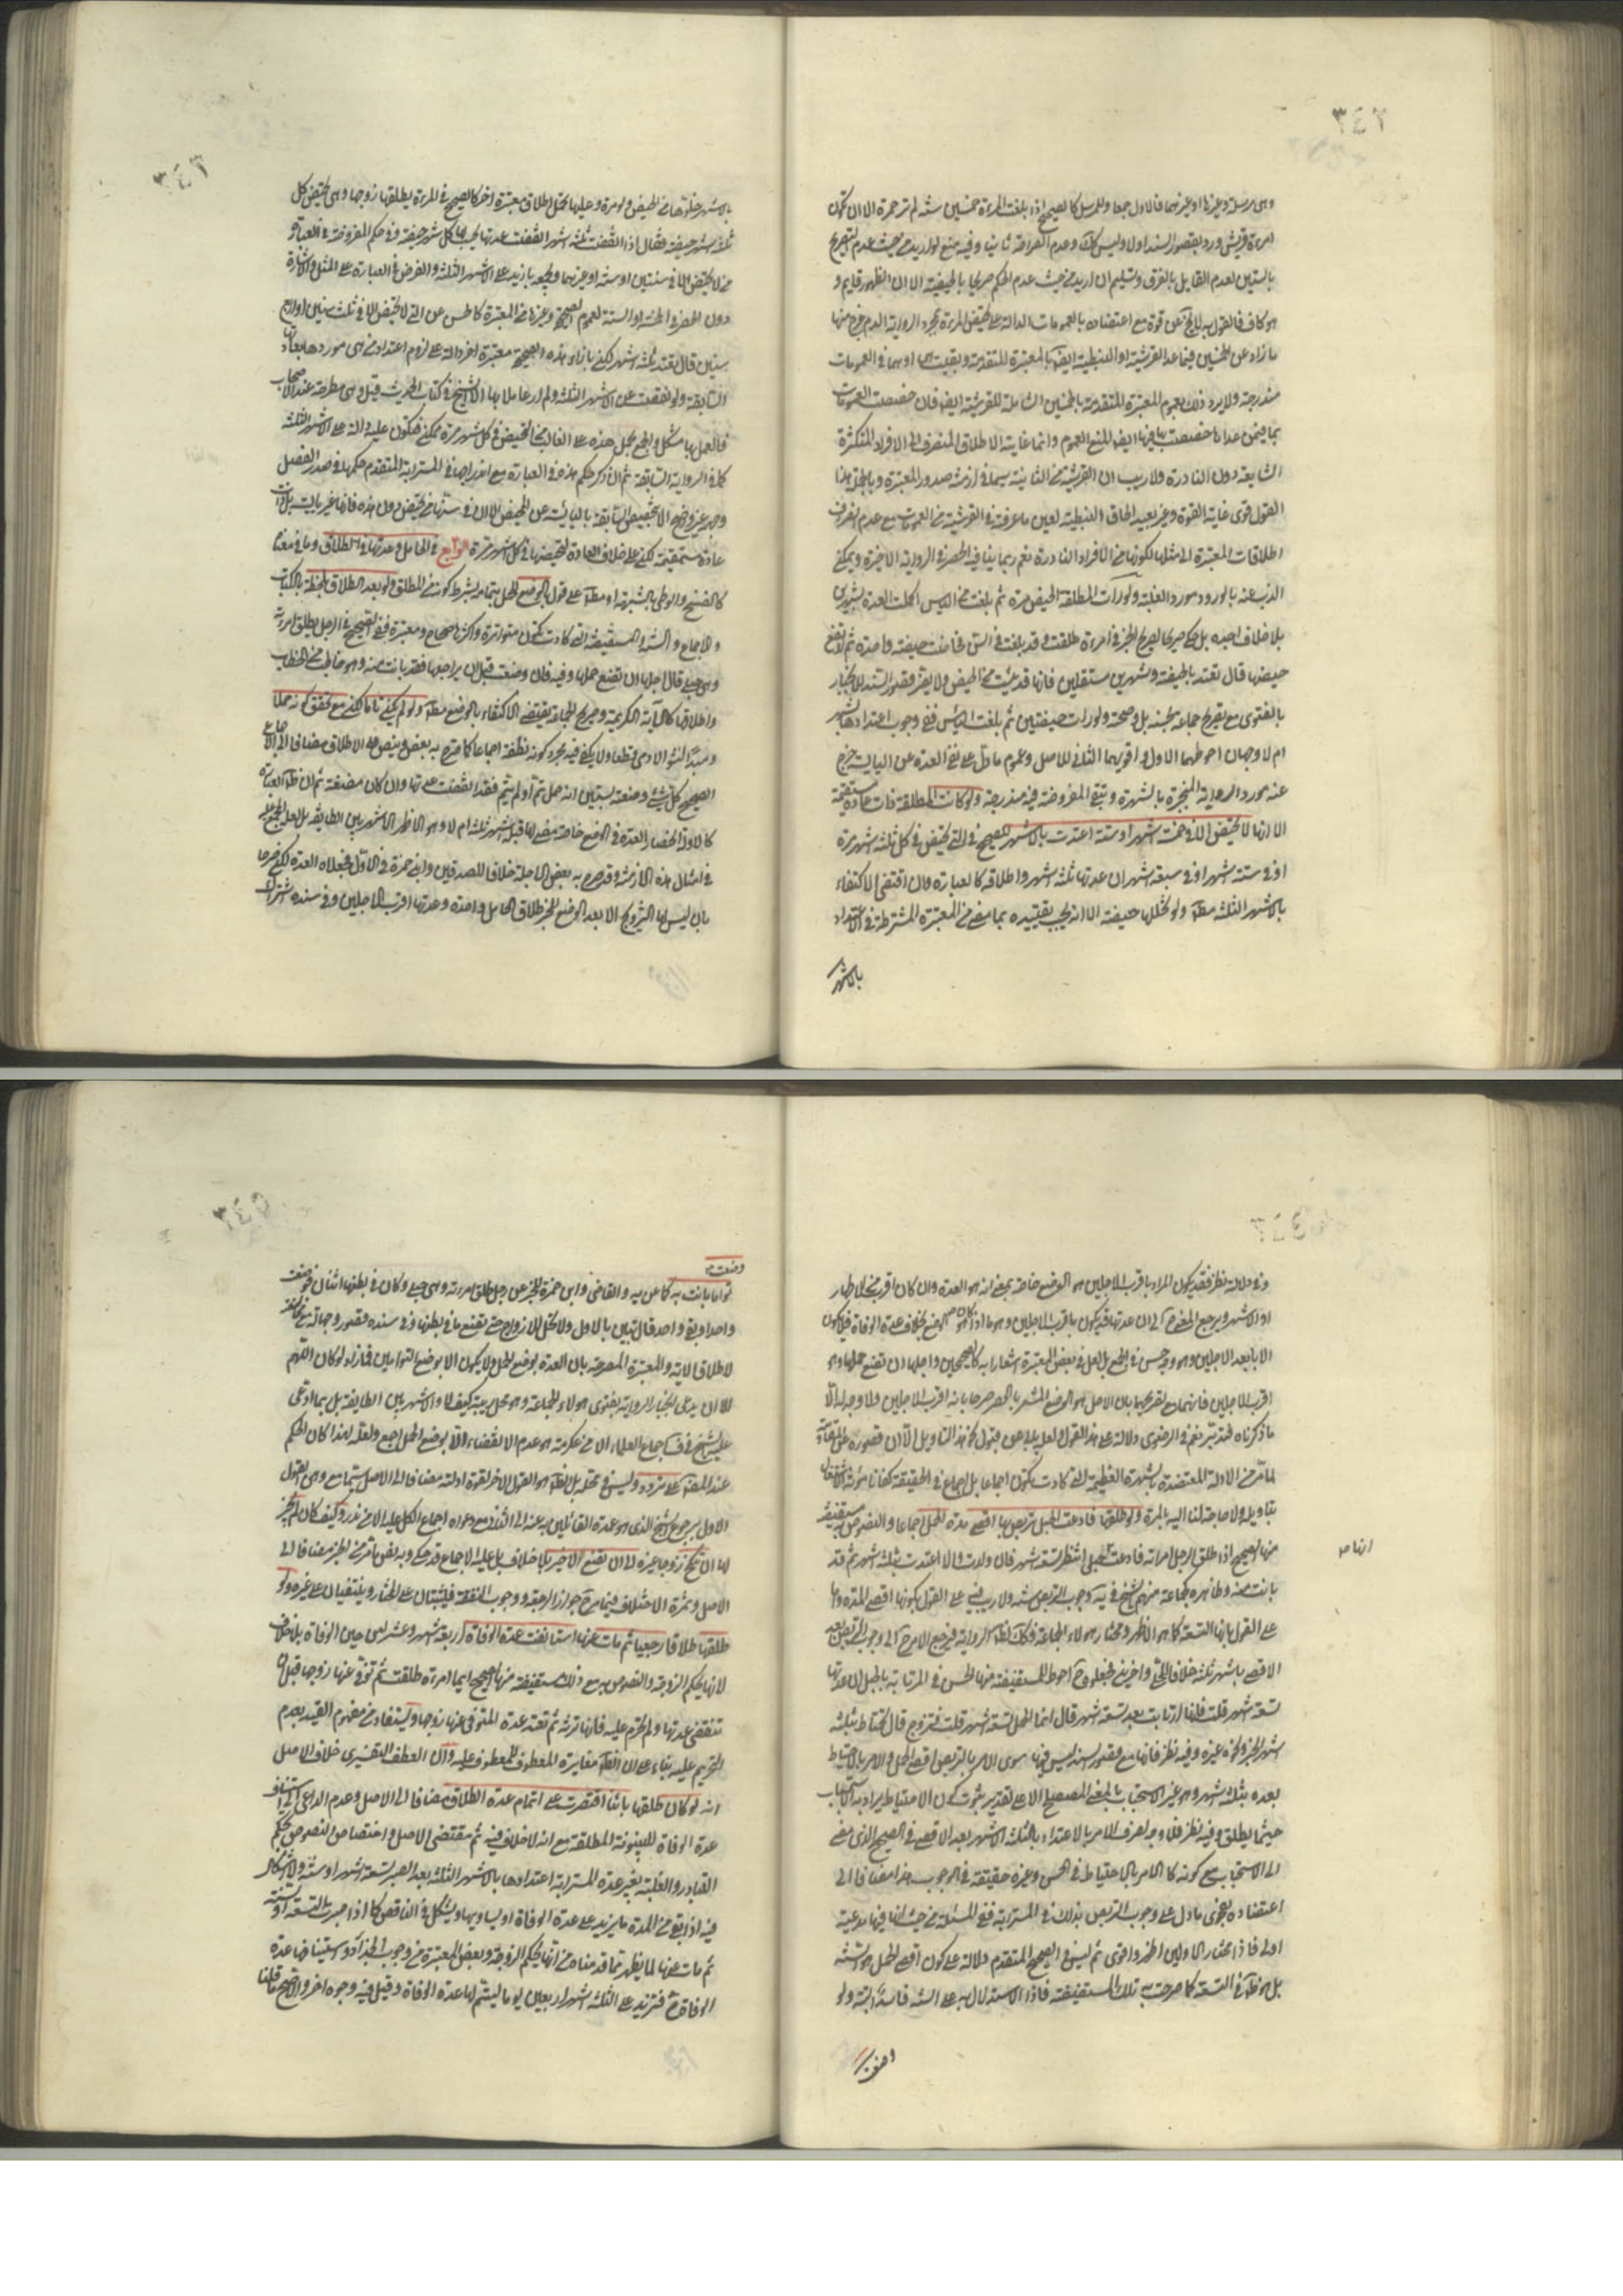 ٣٤٢
وهى مرسلة وغيرها او غيرهما فالاول جمعا وللمرسل كالصحيح اذا بلغت المراة خمسين سنة لم تر حمرة الا ان تكون
امراة من قريش ورد بقصور السند اولا وليس كك وعدم الصراحة ثانيا وفيه منع لو اريد من حيث عدم التصريح
بالستين لعدم القايل بالفرق وتسليم ان اريد من حيث عدم الحكم صريحا بالحيضية الا ان الظهور قايم و
هو كاف فالقول به لا يخ عن قوة مع اعتضاده بالعمومات الدالة على تحيض المراة بمجرد الرواية الدم خرج منها
ما زاد عن الخمسين فيما عدا القرشية او النبطية ايضا بالمعتبرة المتقدمة وبقيت هى او هما فى العمومات
مندرجة ولا يرد ذلك بعموم المعتبرة المتقدمة بالخمسين الشاملة للقرشية ايضا فان خصصت العمومات
بها فيمن عداها خصصت بها فيها ايضا لمنع العموم وانما غايته الاطلاق المنصرف الى الافراد المتكثرة
الشايعة دون النادرة ولا ريب ان القرشية من الثانية سيما فى ازمنة صدور المعتبرة وبالجملة هذا
القول قوى غاية القوة وغير بعيد الحاق النبطية لعين ما عرفته فى القرشية من العمومات مع عدم انصراف
اطلاقات المعتبرة الى مثلها لكونها من الافراد النادرة نعم ربما ينافيه الحصر فى الرواية الاخيرة ويمكن
الذب عنه بالورود مورد الغلبة ولو رات المطلقة الحيض مرة ثم بلغت سن الياس اكملت العدة بشهرين
بلا خلاف اجده بل حكى صريحا لصريح الخبر فى امراة طلقت وقد بلغت فى السن فحاضت حيضة واحدة ثم ارتفع
حيضها قال تعتد بالحيضة وشهرين مستقبلين فانها قد يئست من الحيض ولا يضر قصور السند للانجبار
بالفتوى مع تصريح جماعة بحسنه بل وصحته ولو رات حيضتين ثم بلغت الياس ففى وجوب اعتدادها بشهر
ام لا وجهان احوطهما الاول واقويهما الثانى للاصل وعموم ما دل على نفى العدة عن اليايسة خرج
عنه مورد الرواية المنجبرة بالشهرة وتبقى المفروضة فيه مندرجة ولو كانت المطلقة ذات عادة مستقيمة
الا انها لا تحيض الا فى خمسة اشهر او ستة اعتدت بالاشهر للصحيح فى التى تحيض فى كل ثلثة اشهر مرة
او فى ستة اشهر او فى سبعة اشهر ان عدتها ثلثة اشهر واطلاقه كالعبارة وان اقتضى الاكتفاء
بالاشهر الثلثة مطلقا ولو تخللها حيضة الا انه يجب تقييده بما مضى من المعتبرة المشترطة فى الاعتداد
بالاشهر
٣٤٣
بالاشهر خلوها من الحيض ولو مرة وعليها تحمل اطلاق معتبرة اخر كالصحيح فى المراة يطلقها زوجها وهى تحيض كل
ثلثة اشهر حيضة فقال اذا انقضت ثلثة اشهر انقضت عدتها يحسب لها كل شهر حيضة وفى حكم المفروضة فى العبارة
من لا تحيض الا فى سنتين او سنة او غيرهما ويجمعه ما زيد على الاشهر الثلثة والفرض فى العبارة على المثل والاشارة
دون الحصر فى الخمسة او الستة لعموم الصحيح وغيرها من المعتبرة كالحسن عن التى لا تحيض الا فى ثلث سنين او اربع
سنين قال تعتد ثلثة اشهر لكن بازاء هذه الصحيحة معتبرة اخر دالة على لزوم اعتداد من هى موردها بعادتها
السابقة ولو نقصت عن الاشهر الثلثة ولم ار عاملا بها الا الشيخ فى كتاب الحديث قيل وهى مطرحة عند الاصحاب
فالعمل بها مشكل والجمع بحمل هذه على الغالب من الحيض فى كل شهر مرة ممكن فتكون عليه دالة على الاشهر الثلثة
كما فى الرواية السابقة ثم ان ذكر حكم هذه فى العبارة مع اندراجها فى المسترابة المتقدم حكمها فى صدر الفصل
وجهه غير واضح الا بتخصيص السابقة بالبائسة عن الحيض الا ان فى سنها من تحيض دون هذه فانها غير بايسة بل ذات
عادة مستقيمة لكن على خلاف العادة لتحيضها فى كل اشهر مرة الرابع فى الحامل وعدتها فى الطلاق وما فى معناه
كالفسخ والوطى بالشبهة او مطلقا على قول بالوضع للحمل بتمامه بشرط كونه من المطلق ولو بعد الطلاق بلحظة بالكتاب
والاجماع والسنة المستفيضة التى كادت تكون متواترة واكثرها صحاح ومعتبرة ففى الصحيح فى الرجل يطلق امراته
وهى حبلى قال اجلها ان تضع حملها وفيه فان وضعت قبل ان يراجعها فقد بانت منه وهو خاطب من الخطاب
واطلاقها كالاية الكريمة وصريح الجماعة يقتضى الاكتفاء بالوضع مطلقا ولو لم يكن تاما لكن مع تحقق كونه حملا
ومبدأ النشو الادمى قطعا ولا يكفى فيه مجرد كونه نطفة اجماعا كما صرح به بعض وينص على الاطلاق مضافا الى الاجماع
الصحيح كل شئ وضعته يستبين انه حمل تم او لم يتم فقد انقضت عدتها وان كان مضغة ثم ان ظاهر العبارة
كالادلة انحصار العدة فى الوضع خاصة مضى لها قبله اشهر ثلثة ام لا وهو الاظهر الاشهر بين الطايفة بل لعله المجمع عليه
فى امثال هذه الازمنة وقد صرح به بعض الاجلة خلافا للصدوقين وابن حمزة فى الاول فجعلاه العدة لكن صرحا
بان ليس لها التزويج الا بعد الوضع للخبر طلاق الحامل واحدة وعدتها اقرب الاجلين وفى سنده اشتراك
٣٤٤
وفى دلالته نظر فقد يكون المراد باقرب الاجلين هو الوضع خاصة بمعنى انه هو العدة وان كان اقرب من الاطهار
او الاشهر ويرجع المفهوم الى ان عدتها قد يكون باقرب الاجلين وهو ما اذا كان هو الوضع بخلاف عدة الوفاة فلا يكون
الا بابعد الاجلين وهو وجه حسن فى الجمع بل لعل فى بعض المعتبرة اشعارا به كالصحيحين واجلها ان تضع حملها وهو
اقرب الاجلين فانهما مع تصريحهما بان الاجل هو الوضع المشعر بالحصر صرحا بانه اقرب الاجلين ولا وجه له الا
ما ذكرناه فتدبر نعم فى الرضوى دلالة على هذا القول ولعله يابى عن قبول نحو هذا التاويل الا ان قصوره عن مقاومة
لما مر من الادلة المعتضدة بالشهرة العظيمة التى كادت تكون اجماعا بل اجماع فى الحقيقة كفانا مؤنة الاشتغال
بتاويله ولا حاجة لنا اليه بالمرة ولو طلقها فادعت الحبل تربص بها اقصى مدة الحمل اجماعا والنصوص به مستفيضة
منها الصحيح اذا طلق الرجل امراته فادعت حبلا انتظر تسعة اشهر فان ولدت والا اعتدت بثلثة اشهر ثم قد
انها
بانت منه وظاهره كجماعة منهم الشيخ فى يه وجوب التربص سنة ولا ريب فيه على القول بكونها اقصى المدة واما
على القول بانها التسعة كما هو الاظهر ومختار هولاء الجماعة فكك لظاهر الرواية فيرجع الامر الى وجوب التربص بعد
الاقصى باشهر ثلثة خلافا للحلى واخرين فجعلوه احوط للمستفيضة منها الحسن فى المرتابة بالحبل ان عدتها
تسعة اشهر قلت فانها ارتابت بعد تسعة اشهر قال انما الحمل تسعة اشهر قلت فتزوج قال تحتاط بثلثة
اشهر الخبر ونحوه غيره وفيه نظر فانها مع قصور السند ليس فيها سوى الامر بالتربص اقصى الحمل والامر بالاحتياط
بعده بثلثة اشهر وهو غير الاستحباب بالمعنى المصطلح الا على تقدير ثبوت كون الاحتياط يراد به الاستحباب
حيثما يطلق وفيه نظر فلا وجه لصرف الامر بالاعتداد بالثلثة الاشهر بعد الاقصى فى الصحيح الذى مضى
الى الاستحباب مع كونه كالامر بالاحتياط فى الحسن وغيره حقيقة فى الوجوب هذا مضافا الى
اعتضاده بفحوى ما دل على وجوب التربص بذلك فى المسترابة ففى المسئلة من حيث انها فيها مدعية
اولى فاذا مختار الاولين اظهر واقوى ثم ليس فى الصحيح المتقدم دلالة على كون اقصى الحمل هو السنة
بل هو ظاهر فى التسعة كما صرحت به تلك المستفيضة فاذا الاستدلال به على السنة فاسد البتة ولو
وضعت
٣٤٥
وضعت
تواما بانت به كما عن يه والقاضى وابن حمزة للخبر عن رجل طلق امراته وهى حبلى وكان فى بطنها اثنان فوضعت
واحدا وبقى واحد قال تبين بالاول ولا تحل للازواج حتى تضع ما فى بطنها وفى سنده قصور وجهالة مع مخالفته
لاطلاق الاية والمعتبرة المصرحة بان العدة بوضع الحمل ولا يكون الا بوضع التوامين فما زاد لو كان اللهم
الا ان يدعى انجبار الرواية بفتوى هولاء الجماعة وهو محل ريبة كيف لا والاشهر بين الطايفة بل بما ادعى
عليه الشيخ فى ف اجماع العلماء الا من عكرمة هو عدم الانقضاء الا بوضع الحمل اجمع ولعله لهذا كان الحكم
عند المصنف على تردد وليس فى محله بل الظاهر هو القول الاخر لقوة ادلته مضافا الى الاصل سيما مع وهن القول
الاول برجوع الشيخ الذى هو عمدة القائلين به عنه الى الثانى مع دعواه اجماع الكل عليه الا من ندر وكيف كان لم يجز
لها ان تنكح زوجا غيره الى ان تضع الاخير بلا خلاف بل عليه الاجماع قد حكى وبه نص ما مر من الخبر مضافا الى
الاصل وثمرة الاختلاف فيما صرح جواز الرجعة ووجوب النفقة فيثبتان على المختار وينتفيان على غيره ولو
طلقها طلاقا رجعيا ثم مات عنها استانفت عدة الوفاة اربعة اشهر وعشرا من حين الوفاة بلا خلاف
لانها بحكم الزوجة والنصوص به مع ذلك مستفيضة منها الصحيح ايما امراة طلقت ثم توفى عنها زوجها قبل ان
تنقضى عدتها ولم تحرم عليه فانها ترثه ثم تعتد عدة المتوفى عنها زوجها ويستفاد من مفهوم القيد بعدم
التحريم عليه بناء على ان الظاهر مغايرة المعطوف للمعطوف عليه وان العطف التفسيرى خلاف الاصل
انه لو كان طلقها باينا اقتصرت على اتمام عدة الطلاق مضافا الى الاصل وعدم الداعى الى استيناف
عدة الوفاة للبينونة المطلقة مع انه لا خلاف فيه ثم مقتضى الاصل واختصاص النصوص بحكم
التبادر والغلبة بغير عدة المسترابة اعتدادها بالاشهر الثلثة بعد الصبر تسعة اشهر او سنة ولا اشكال
فيه اذا بقى من المدة ما يزيد على عدة الوفاة او يساويها ويشكل فى الناقص كما اذا صبرت التسعة او السنة
ثم مات عنها لما يظهر مما قدمناه من انها بحكم الزوجة وبعض المعتبرة من وجوب الحداد واستينافها عدة
الوفاة فتزيد على الثلثة اشهر اربعين يوما ليستتم لها عدة الوفاة وقيل فيه وجوه اخر والاصح ما قلنا